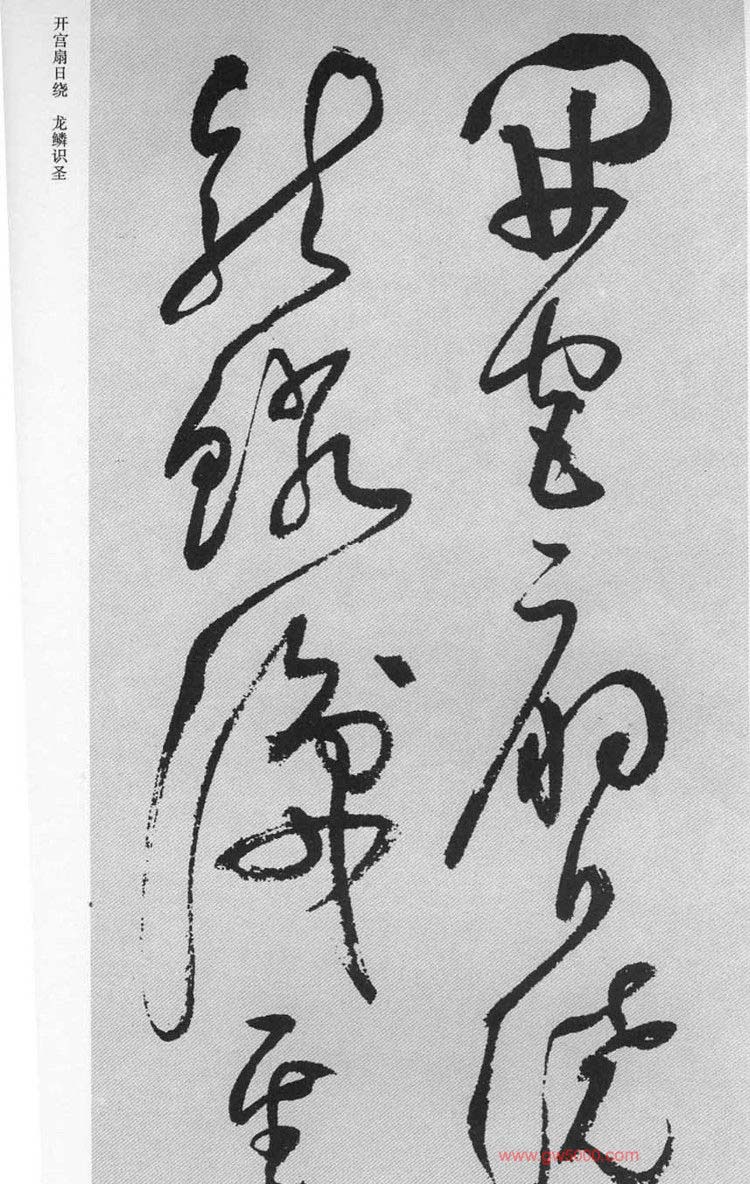 开宫扇日绕 龙鳞识圣
開宫扇日繞
龍鱗識聖
www.gw5000.com